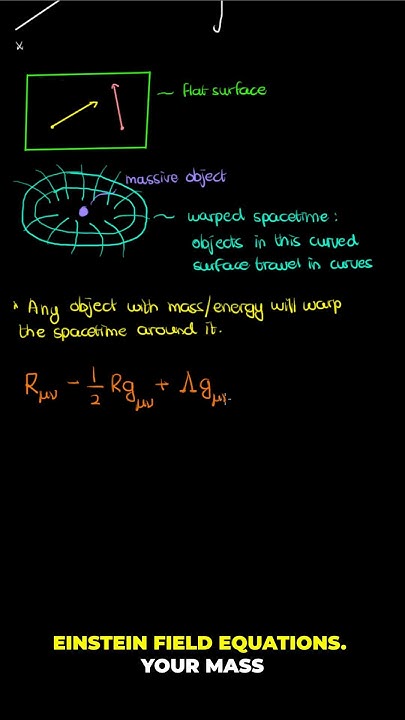 x
flat surface
massive object
warped spacetime :
objects in this curved
surface travel in curves
* Any object with mass/energy will warp
the spacetime around it.
Rμν − 1/2 Rgμν + Λgμν
EINSTEIN FIELD EQUATIONS.
YOUR MASS